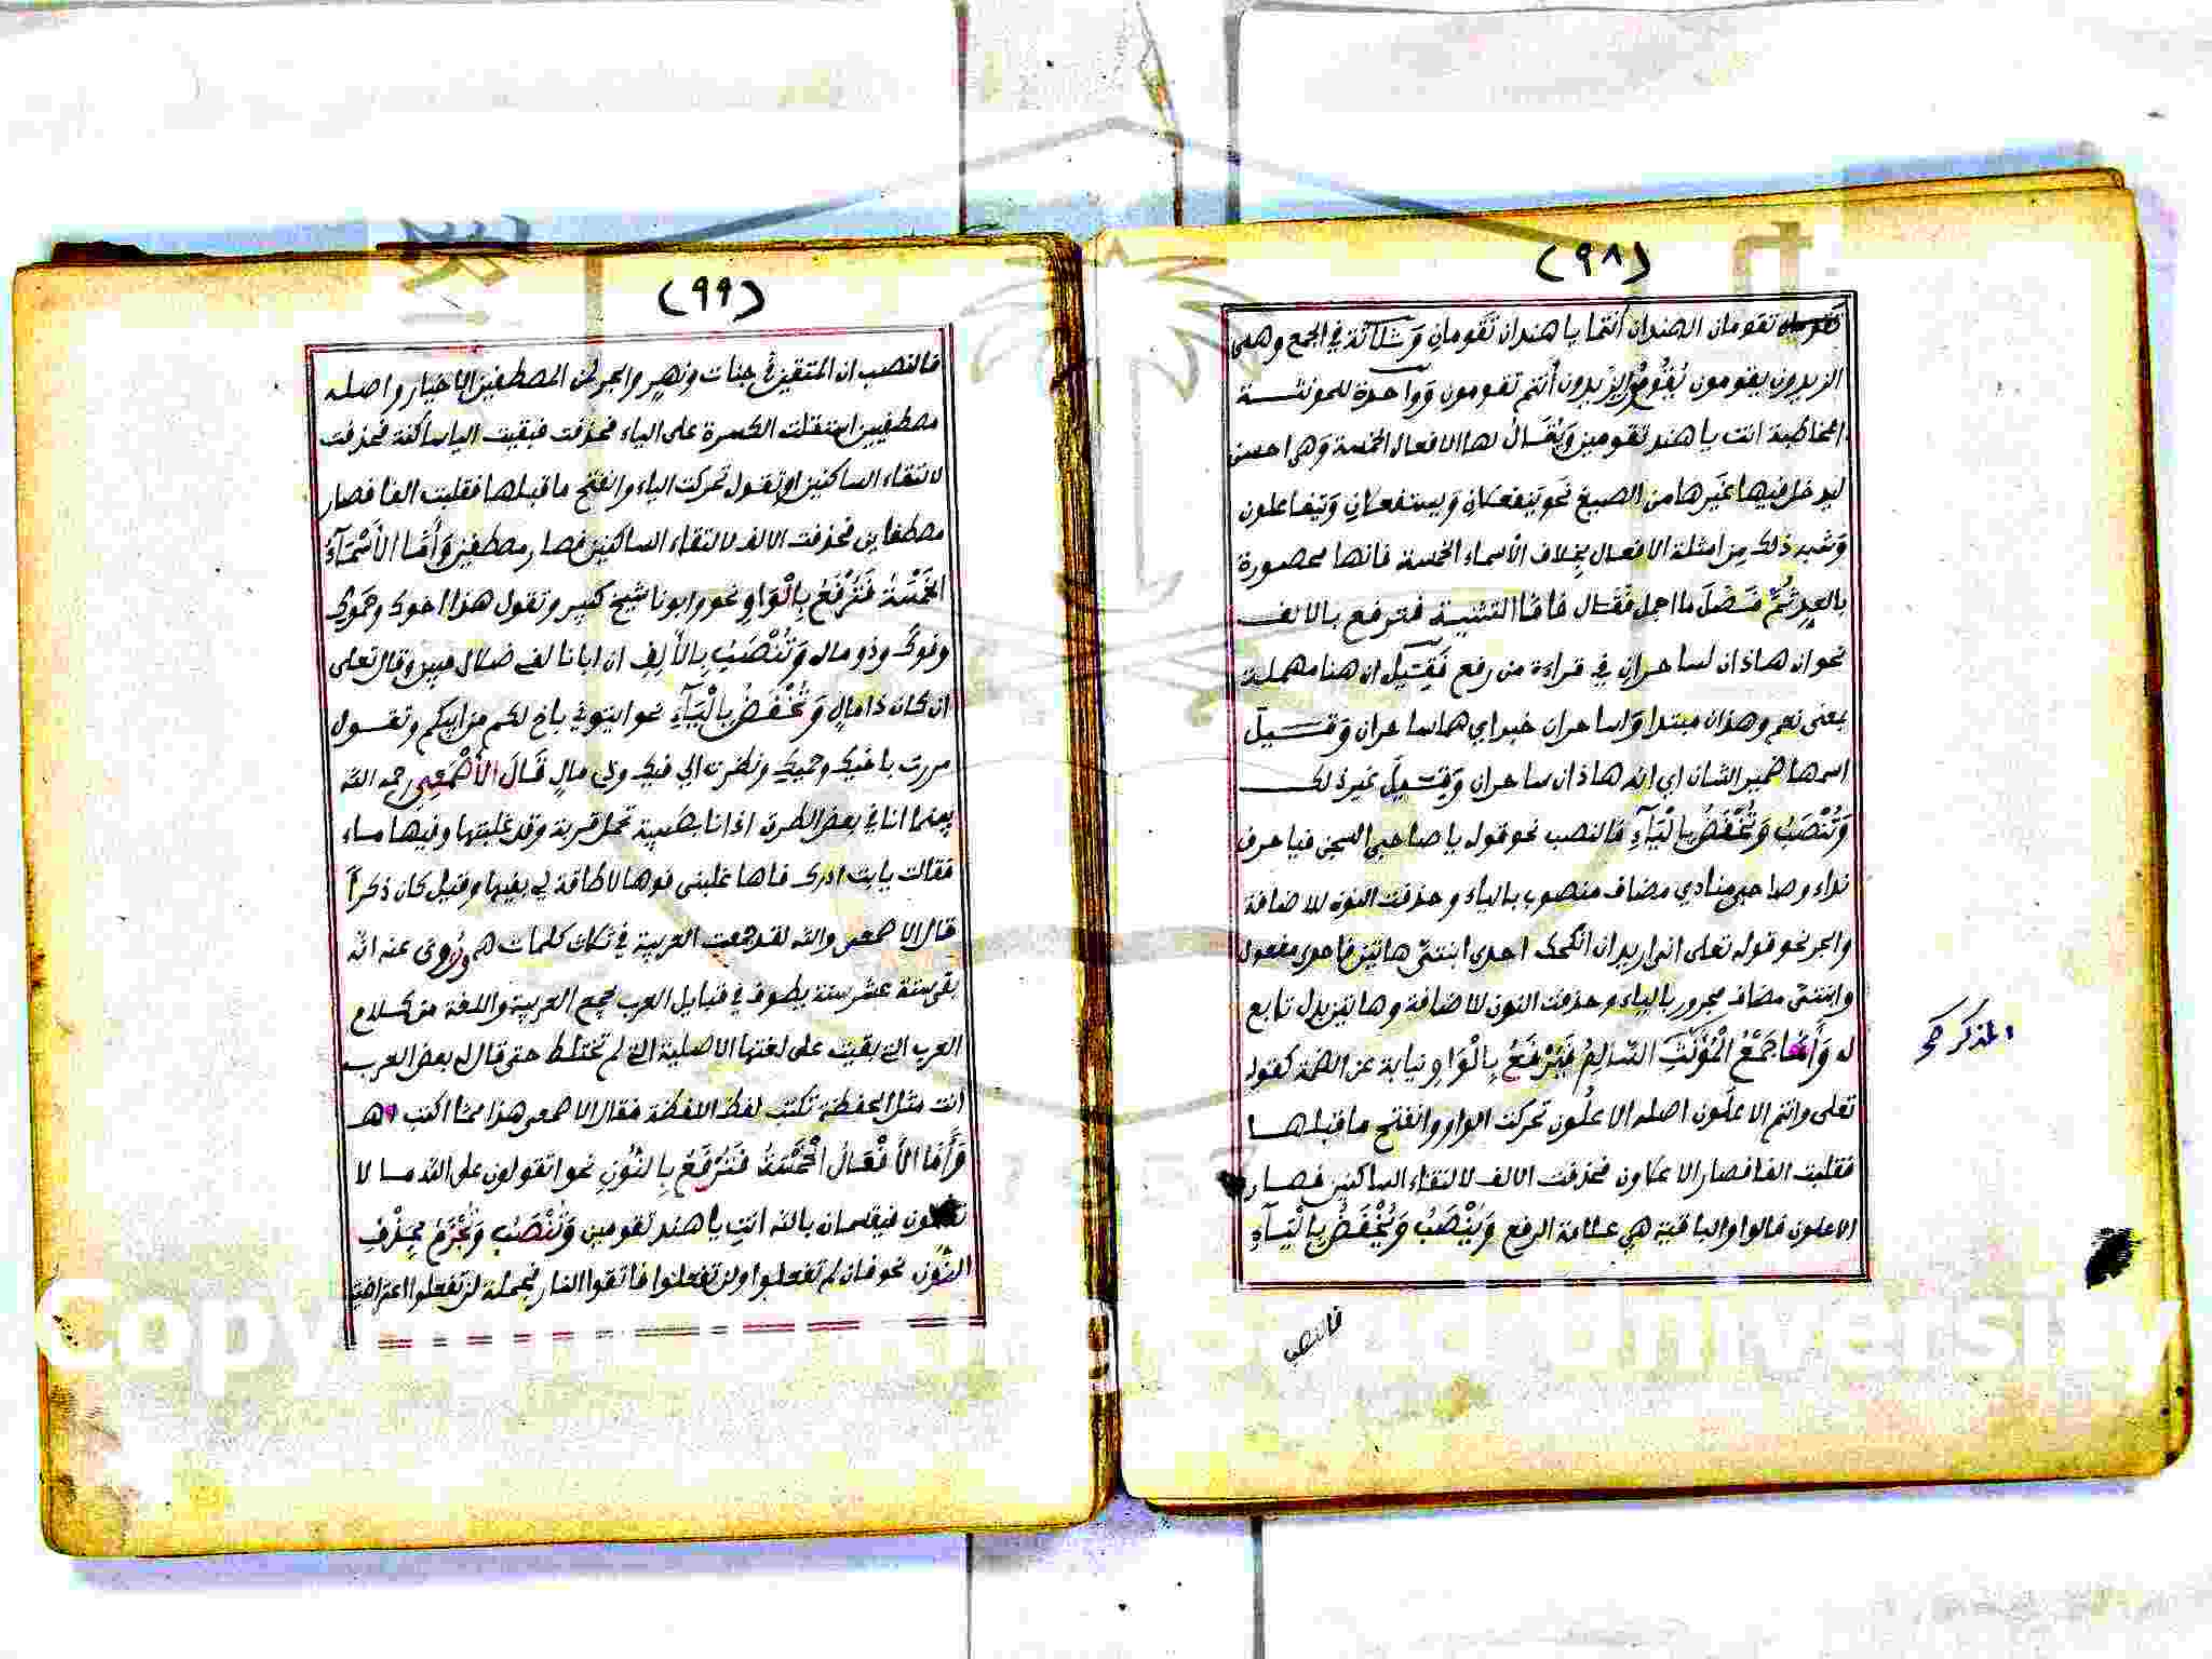 (٩٨)
تقومان الهندان أنتما يا هندان تقومان وثلاثة في الجمع وهي
الزيدون يقومون الزيدون أنتم تقومون وواحدة للمونثة
المخاطبة انت يا هند تقومين ويقال لها الافعال الخمسة وهي احسن
ليدخل فيها غيرها من الصيغ نحو ينفعلان ويستفعلان وتيفاعلون
وشبه ذلك من امثلة الافعال بخلاف الأسماء الخمسة فانها محصورة
بالعد ثم فصل ما اجمل فقال فاما التثنية فترفع بالالف
نحو ان هاذان لساحران في قراءة من رفع فقيل ان هنا مهملة
بمعنى نعم وهذان مبتدا ولساحران خبر اي هما ساحران وقيل
اسمها ضمير الشان اي انه هاذان ساحران وقيل غير ذلك
وتنصب وتخفض بالياء فالنصب نحو قوله يا صاحبي السجن فيا حرف
نداء وصاحبي منادي مضاف منصوب بالياء وحذفت النون للاضافة
والجر نحو قوله تعلى اني اريد ان انكحك احدى ابنتي هاتين فاحدى مفعول
وابنتي مضاف مجرور بالياء وحذفت النون للاضافة وهاتين بدل تابع
له وأما جمع المؤنث السالم فيرفع بالواو نيابة عن الضمة كقوله
المذكر صح
تعلى وانتم الاعلون اصله الاعلون تحركت الواو وانفتح ما قبلها
فقلبت الفا فصار الاعلاون فحذفت الالف لالتقاء الساكنين فصار
الاعلون فالواو الباقية هي علامة الرفع وينصب ويخفض بالياء
فالنصب
(٩٩)
فالنصب ان المتقين في جنات ونهر والجر لمن المصطفين الاخيار واصله
مصطفيين استثقلت الكسرة على الياء فحذفت فبقيت الياء ساكنة فحذفت
لالتقاء الساكنين او تقول تحركت الياء وانفتح ما قبلها فقلبت الفا فصار
مصطفاين فحذفت الالف لالتقاء الساكنين فصار مصطفين وأما الأسماء
الخمسة فترفع بالواو نحو وابونا شيخ كبير وتقول هذا اخوك وحموك
وفوك وذو مال وتنصب بالألف ان ابانا لفي ضلال مبين وقال تعلى
ان كان ذا مال وتخفض بالياء نحو ايتوني باخ لكم من ابيكم وتقول
مررت باخيك وحميك ونظرت الي فيك وذي مال قال الأصمعي رحمه الله
بينما انا في بعض الطرق اذ انا بصبية تحمل قربة وقد غلبتها وفيها ماء
فقالت يا ابت ادرك فاها غلبني فوها لا طاقة لي بفيها وقيل كان ذكرا
قال الاصمعي والله لقد جمعت العربية في ثلاث كلمات وروى عنه انه
بقى ستة عشر سنة يطوف في قبايل العرب يجمع العربية واللغة من كلام
العرب التي بقيت على لغتها الاصلية التي لم تختلط حتى قال له بعض العرب
انت مثل الحفظة تكتب لفظ اللفظة فقال الاصمعي هذا مما اكتب اهـ
وأما الأفعال الخمسة فترفع بالنون نحو اتقولون على الله ما لا
فيقسمان بالله انت يا هند تقومين وتنصب وتجزم بحذف
النون نحو فان لم تفعلوا ولن تفعلوا فاتقوا النار فجملة لن تفعلوا اعتراضية